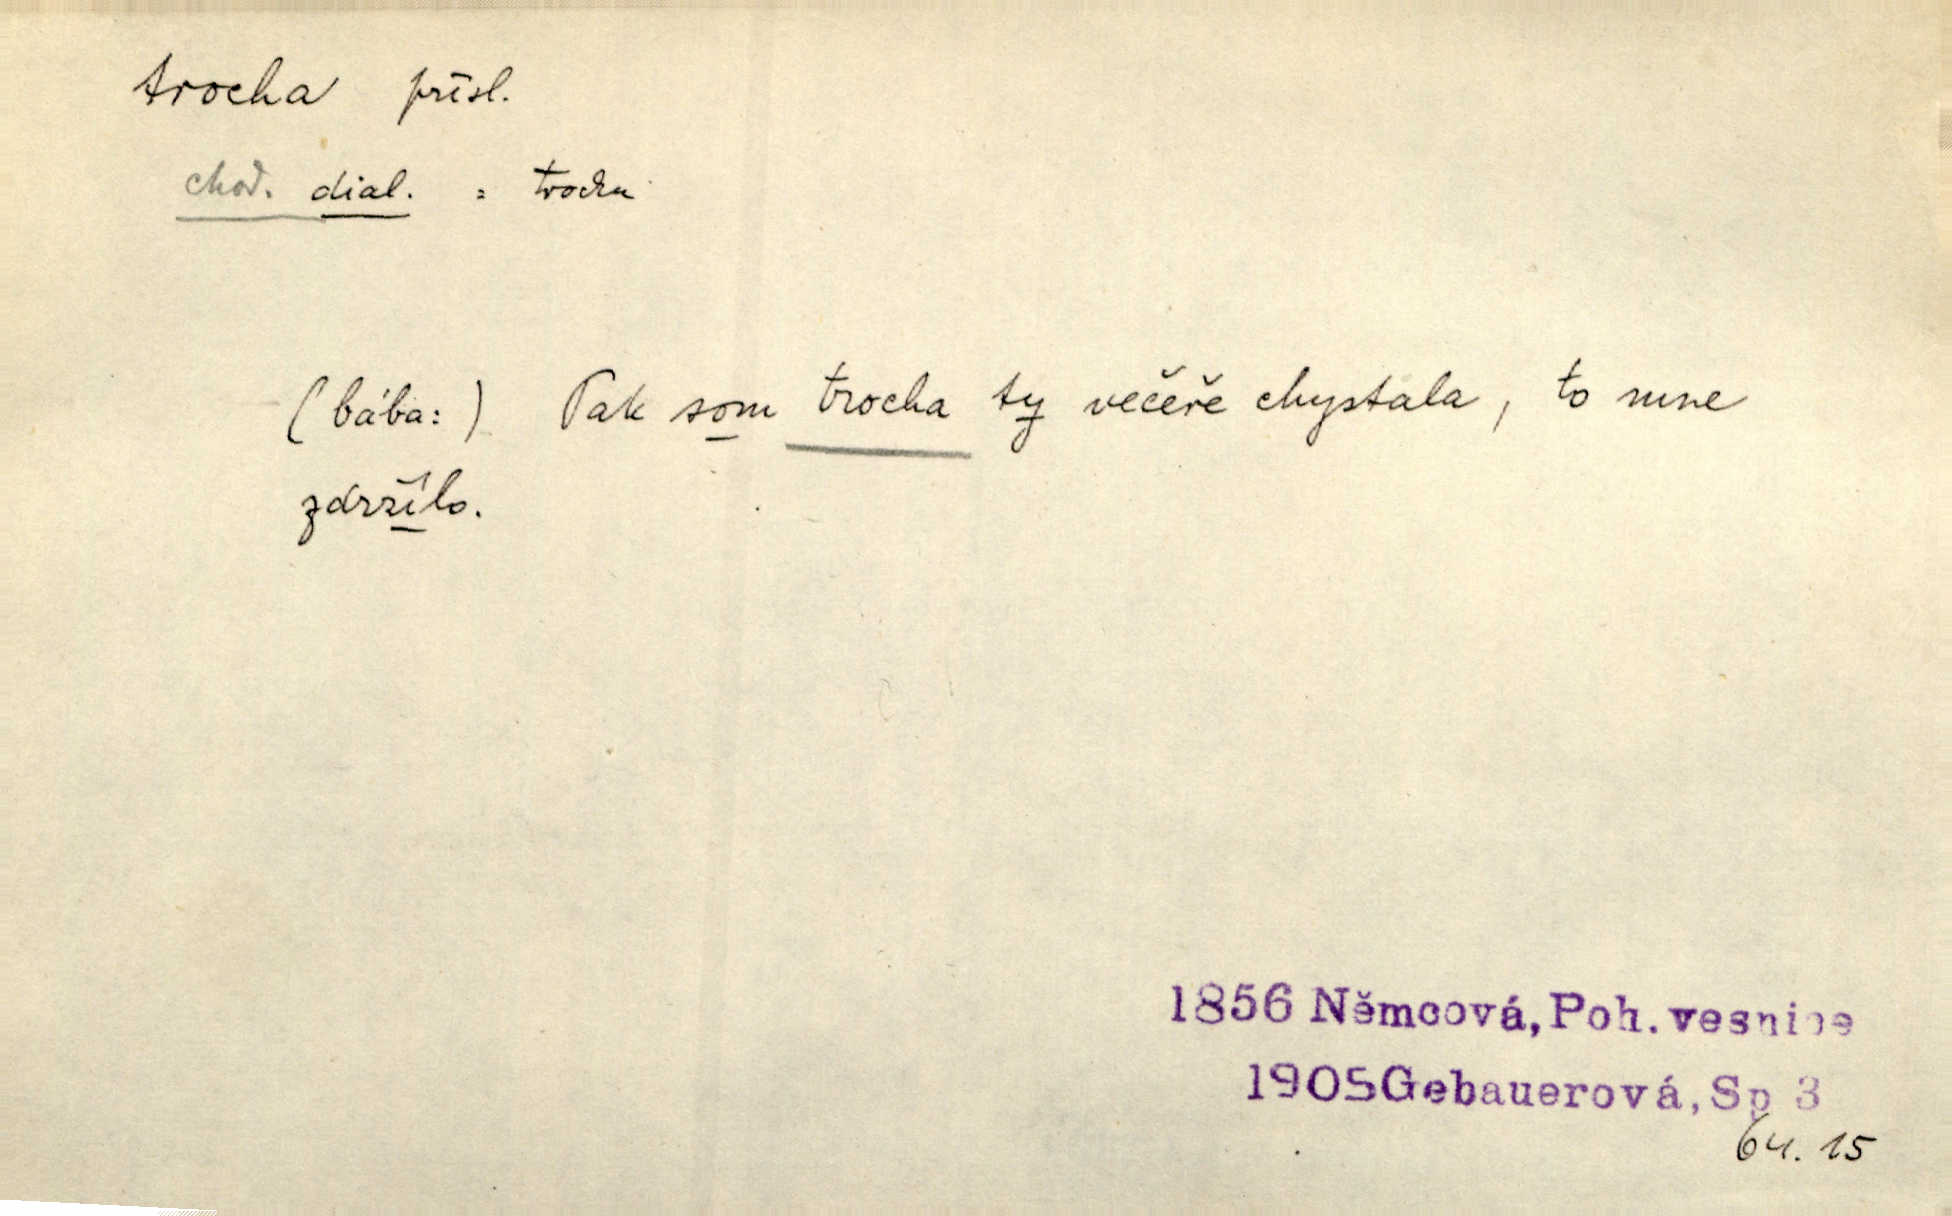 trocha přísl.
chod. dial. = trochu
(bába:) Tak som trocha ty večeře chystala, to mne
zdržílo.
1856 Němcová, Poh. vesnice
1905 Gebauerová, Sp 3
64. 15